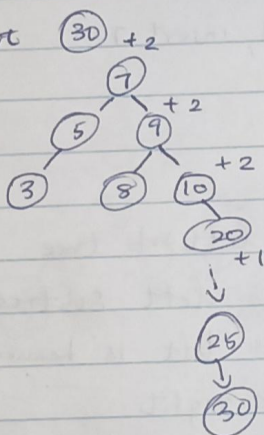 30 +2
7
+2
5 9
+2
3 8 10
20
+1
25
30